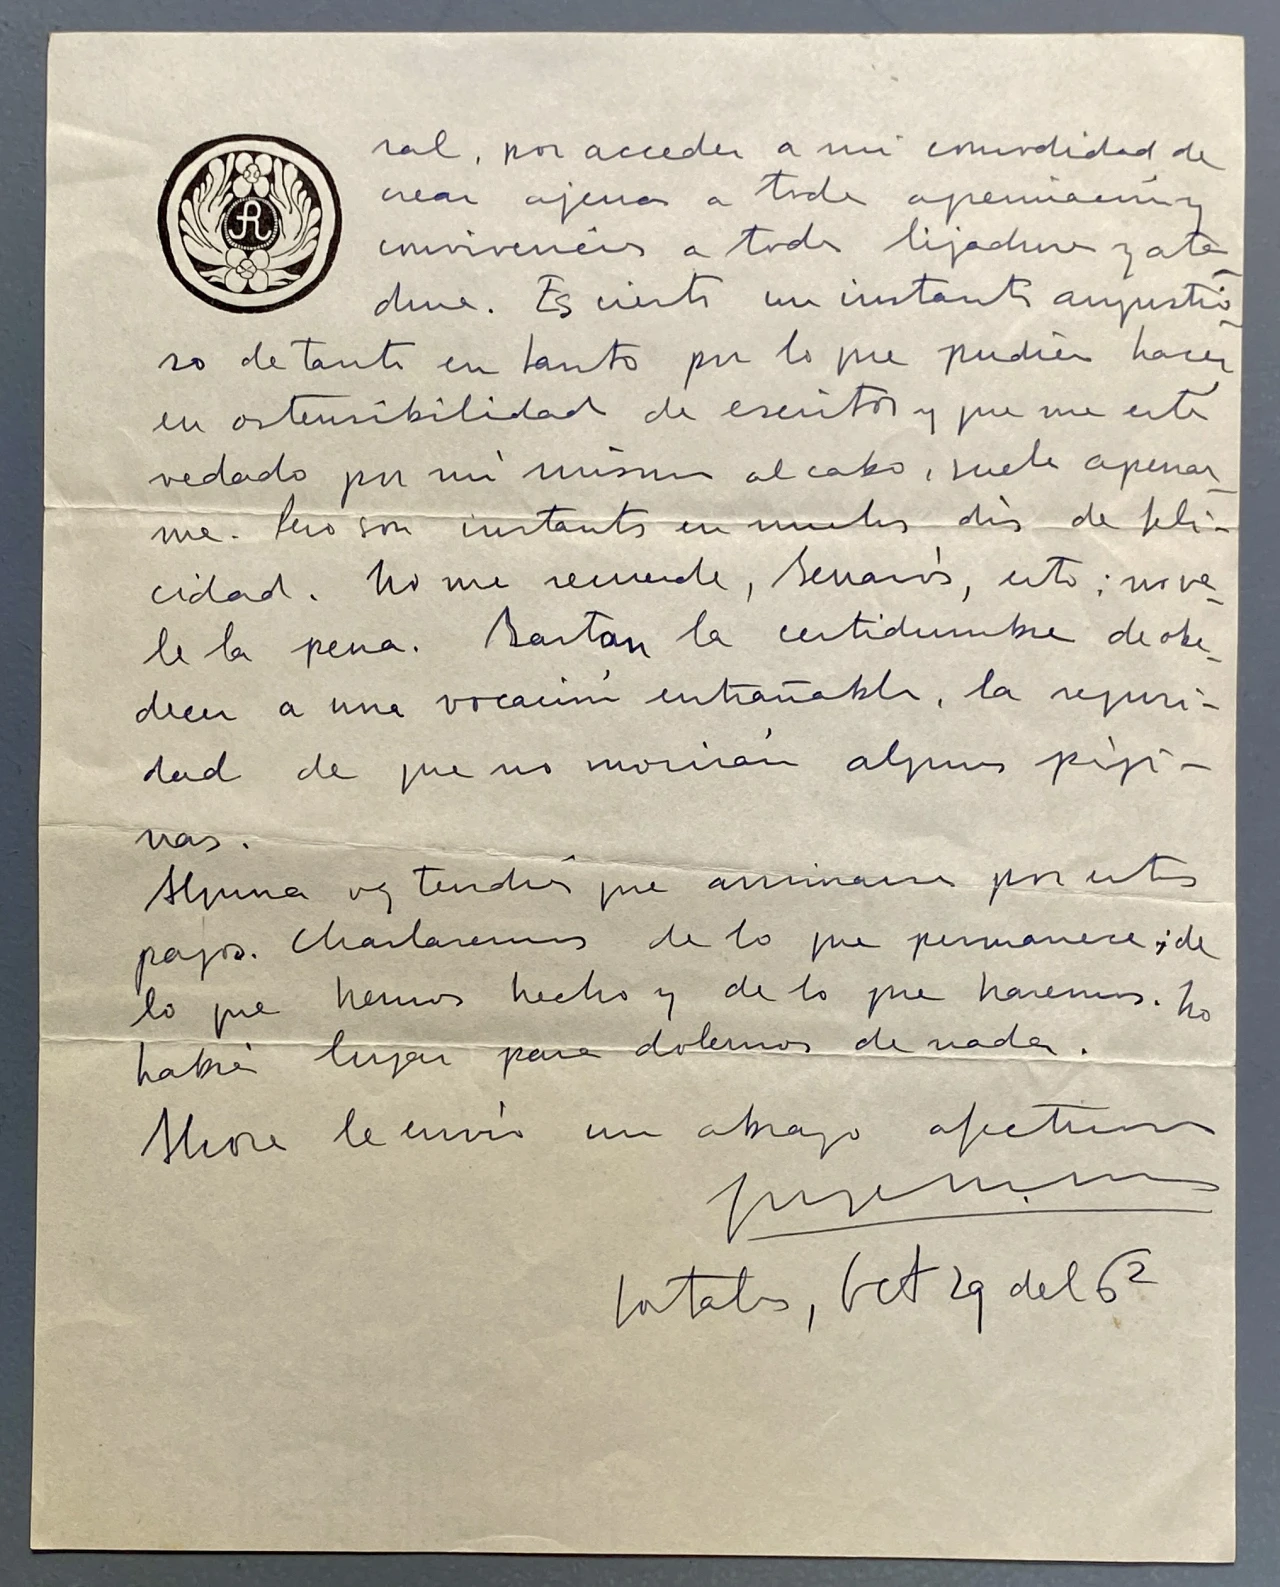 ral, por acceder a mi comodidad de
crear ajena a toda apreciación y
convivencias a toda fijadura y ata-
dura. Es cierto un instante angustio-
so de tanto en tanto por lo que pudiera hacer
en ostensibilidad de escritor y que me está
vedado por mí mismo al cabo, suele apenar-
me. Pero son instantes en muchos días de feli-
cidad. No me recuerde, Benarós, esto; no va-
le la pena. Bastan la certidumbre de obe-
decer a una vocación entrañable, la seguri-
dad de que no morirán algunas pági-
nas.
Alguna vez tendrá que arrimarse por estos
pagos. Charlaremos de lo que permanece; de
lo que hemos hecho y de lo que haremos. No
habrá lugar para dolernos de nada.
Ahora le envío un abrazo afectuoso
Oct 29 del 62
R